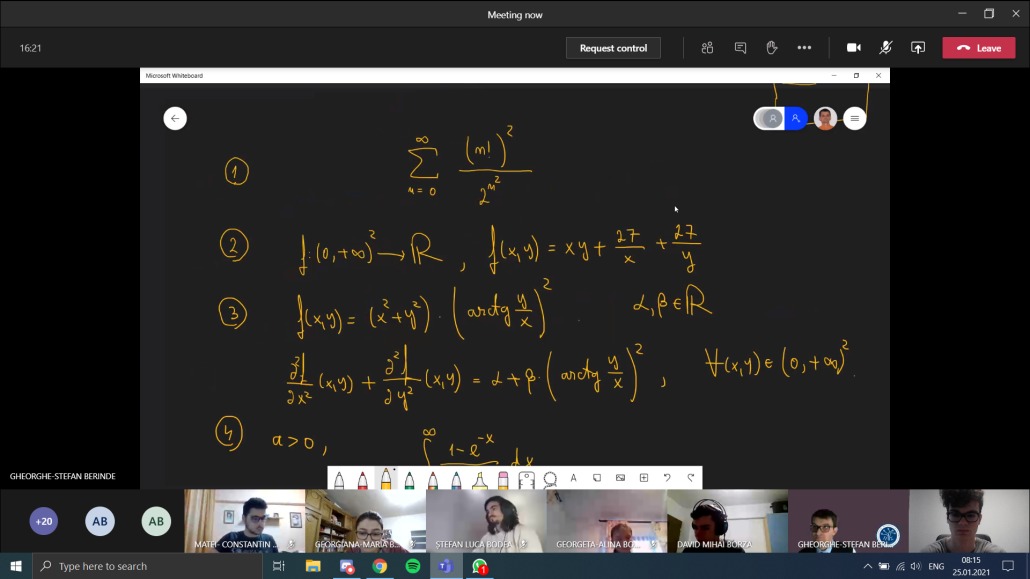 Meeting now
16:21
Request control
Leave
Microsoft Whiteboard
① ∑_{n=0}^{∞} (n!)² / 2^{n²}
② f:(0,+∞)² → ℝ , f(x,y) = xy + 27/x + 27/y
③ f(x,y) = (x²+y²)·(arctg y/x)² . α,β ∈ ℝ
∂²f/∂x² (x,y) + ∂²f/∂y² (x,y) = α + β·(arctg y/x)² , ∀(x,y) ∈ (0,+∞)².
④ a>0, ∫^{∞} 1-e^{-x} dx
GHEORGHE-STEFAN BERINDE
+20 AB AB
MATEI- CONSTANTIN ...
GEORGIANA-MARIA B...
STEFAN LUCA BODEA
GEORGETA-ALINA BO...
DAVID MIHAI BORZA
GHEORGHE-STEFAN BERI...
Type here to search
1
ENG
08:15
25.01.2021